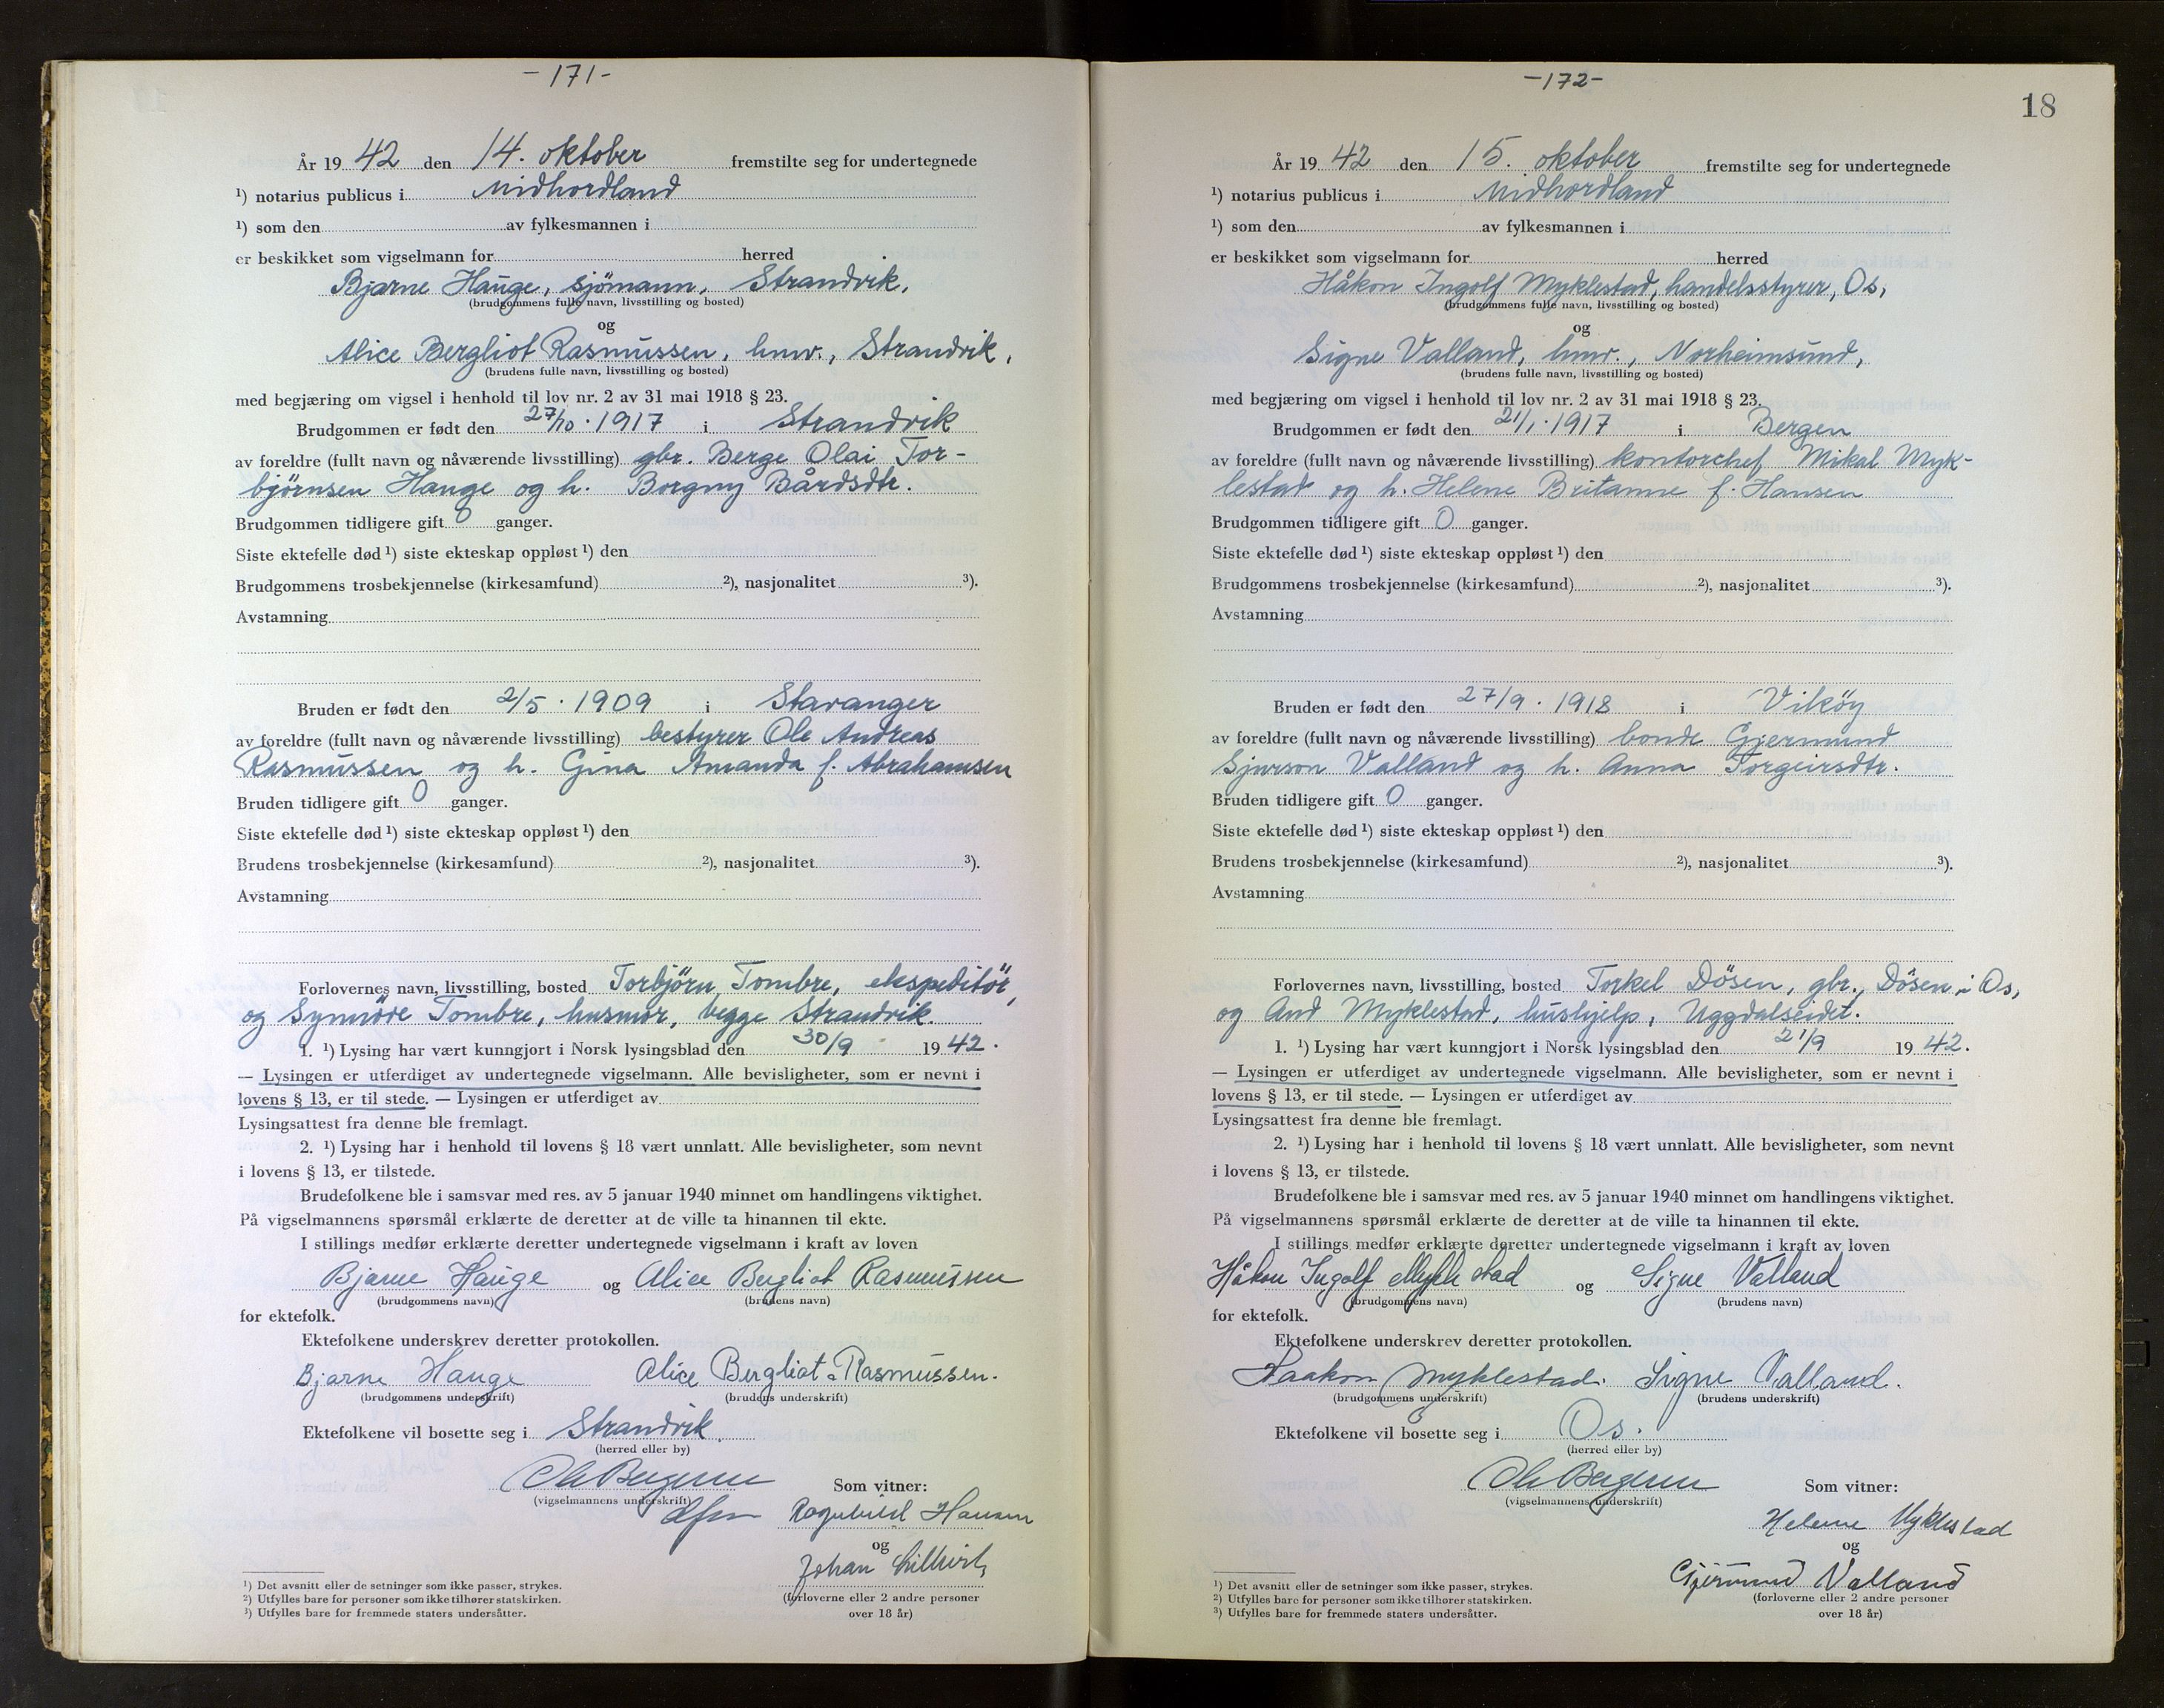 -171-
År 19 42 den 14. oktober fremstilte seg for undertegnede
¹) notarius publicus i Midhordland
¹) som den av fylkesmannen i
er beskikket som vigselmann for herred
Bjarne Hauge, sjömann, Strandvik,
(brudgommens fulle navn, livsstilling og bosted)
og
Alice Bergliot Rasmussen, hmv., Strandvik,
(brudens fulle navn, livsstilling og bosted)
med begjæring om vigsel i henhold til lov nr. 2 av 31 mai 1918 § 23.
Brudgommen er født den 27/10. 1917 i Strandvik
av foreldre (fullt navn og nåværende livsstilling) gbr. Berge Olai Tor-
björnsen Hauge og h. Borgny Bårdsdtr.
Brudgommen tidligere gift 0 ganger.
Siste ektefelle død ¹) siste ekteskap oppløst ¹) den
Brudgommens trosbekjennelse (kirkesamfund) ²), nasjonalitet ³).
Avstamning
Bruden er født den 2/5. 1909 i Stavanger
av foreldre (fullt navn og nåværende livsstilling) bestyrer Ole Andreas
Rasmussen og h. Gina Amanda f. Abrahamsen
Bruden tidligere gift 0 ganger.
Siste ektefelle død ¹) siste ekteskap oppløst ¹) den
Brudens trosbekjennelse (kirkesamfund) ²), nasjonalitet ³).
Avstamning
Forlovernes navn, livsstilling, bosted Torbjörn Tombre, ekspeditör,
og Synnöve Tombre, husmor, begge Strandvik.
1. ¹) Lysing har vært kunngjort i Norsk lysingsblad den 30/9 19 42.
— Lysingen er utferdiget av undertegnede vigselmann. Alle bevisligheter, som er nevnt i
lovens § 13, er til stede. — Lysingen er utferdiget av
Lysingsattest fra denne ble fremlagt.
2. ¹) Lysing har i henhold til lovens § 18 vært unnlatt. Alle bevisligheter, som nevnt
i lovens § 13, er tilstede.
Brudefolkene ble i samsvar med res. av 5 januar 1940 minnet om handlingens viktighet.
På vigselmannens spørsmål erklærte de deretter at de ville ta hinannen til ekte.
I stillings medfør erklærte deretter undertegnede vigselmann i kraft av loven
Bjarne Hauge og Alice Bergliot Rasmussen
(brudgommens navn) (brudens navn)
for ektefolk.
Ektefolkene underskrev deretter protokollen.
Bjarne Hauge Alice Bergliot Rasmussen.
(brudgommens underskrift) (brudens underskrift)
Ektefolkene vil bosette seg i Strandvik.
(herred eller by)
Som vitner:
(vigselmannens underskrift)
Ragnhild Hansen
og
Johan
(forloverne eller 2 andre personer
over 18 år)
¹) Det avsnitt eller de setninger som ikke passer, strykes.
²) Utfylles bare for personer som ikke tilhører statskirken.
³) Utfylles bare for fremmede staters undersåtter.
-172-
18
År 19 42 den 15. oktober fremstilte seg for undertegnede
¹) notarius publicus i Midhordland
¹) som den av fylkesmannen i
er beskikket som vigselmann for herred
Håkon Ingolf Myklestad, handelsstyrer, Os,
(brudgommens fulle navn, livsstilling og bosted)
og
Signe Valland, hmv., Norheimsund,
(brudens fulle navn, livsstilling og bosted)
med begjæring om vigsel i henhold til lov nr. 2 av 31 mai 1918 § 23.
Brudgommen er født den 21/1. 1917 i Bergen
av foreldre (fullt navn og nåværende livsstilling) kontorchef Mikal Myk-
lestad og h. Helene Britanne f. Hansen
Brudgommen tidligere gift 0 ganger.
Siste ektefelle død ¹) siste ekteskap oppløst ¹) den
Brudgommens trosbekjennelse (kirkesamfund) ²), nasjonalitet ³).
Avstamning
Bruden er født den 27/9. 1918 i Viköy
av foreldre (fullt navn og nåværende livsstilling) bonde Gjermund
Sjurson Valland og h. Anna Torgeirsdtr.
Bruden tidligere gift 0 ganger.
Siste ektefelle død ¹) siste ekteskap oppløst ¹) den
Brudens trosbekjennelse (kirkesamfund) ²), nasjonalitet ³).
Avstamning
Forlovernes navn, livsstilling, bosted Torkel Dösen, gbr., Dösen i Os,
og Aud Myklestad, hushjelp, Uggdalseidet.
1. ¹) Lysing har vært kunngjort i Norsk lysingsblad den 21/9 19 42.
— Lysingen er utferdiget av undertegnede vigselmann. Alle bevisligheter, som er nevnt i
lovens § 13, er til stede. — Lysingen er utferdiget av
Lysingsattest fra denne ble fremlagt.
2. ¹) Lysing har i henhold til lovens § 18 vært unnlatt. Alle bevisligheter, som nevnt
i lovens § 13, er tilstede.
Brudefolkene ble i samsvar med res. av 5 januar 1940 minnet om handlingens viktighet.
På vigselmannens spørsmål erklærte de deretter at de ville ta hinannen til ekte.
I stillings medfør erklærte deretter undertegnede vigselmann i kraft av loven
Håkon Ingolf Myklestad og Signe Valland
(brudgommens navn) (brudens navn)
for ektefolk.
Ektefolkene underskrev deretter protokollen.
Haakon Myklestad. Signe Valland.
(brudgommens underskrift) (brudens underskrift)
Ektefolkene vil bosette seg i Os.
(herred eller by)
Som vitner:
(vigselmannens underskrift)
Helene Myklestad
og
Gjermund Valland
(forloverne eller 2 andre personer
over 18 år)
¹) Det avsnitt eller de setninger som ikke passer, strykes.
²) Utfylles bare for personer som ikke tilhører statskirken.
³) Utfylles bare for fremmede staters undersåtter.